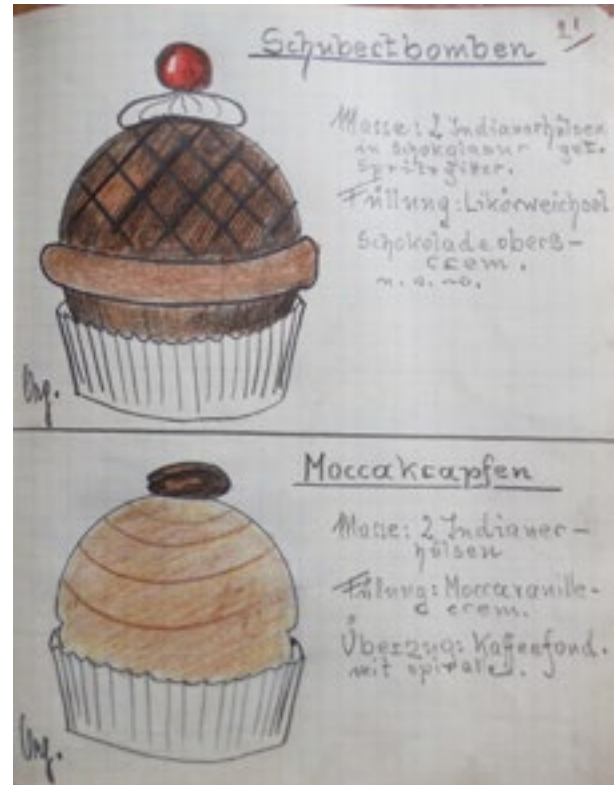 21
Schubertbomben
Masse: 2 Indianerhülsen
in Schokoladur get.
Spritzgitter.
Füllung: Likörweichsel
Schokoladeobers-
crem.
n. a. no.
Ung.
Moccakrapfen
Masse: 2 Indianer-
hülsen
Füllung: Moccavanille-
crem.
Überzug: Kaffeefond.
mit spirale.
Ung.